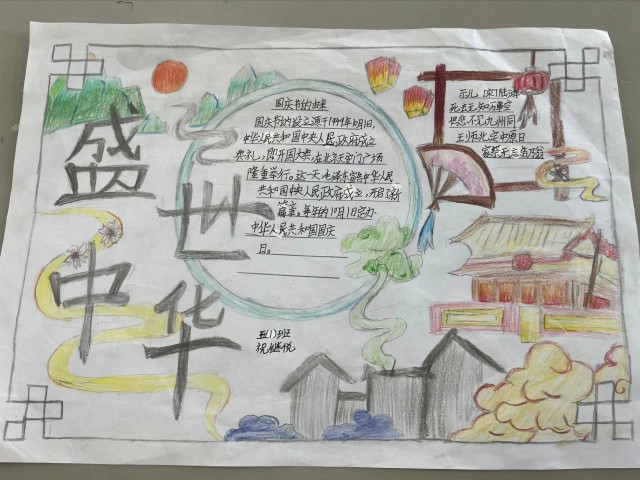 盛世中华
国庆节的由来
国庆节的设立源于1949年10月1日,
中华人民共和国中央人民政府成立
典礼,即开国大典,在北京天安门广场
隆重举行。这一天毛泽东宣告中华人民
共和国中央人民政府成立,开启了新
篇章,每年的10月1日定为
中华人民共和国国庆
日。
示儿 宋|陆游
死去元知万事空
但悲不见九州同
王师北定中原日
家祭无忘告乃翁
五(1)班
祝继悦